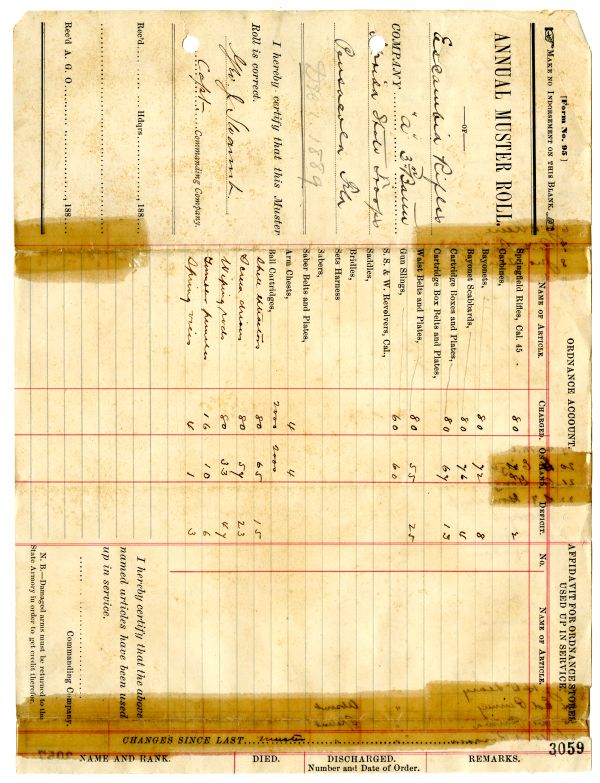 [Form No. 95]
MAKE NO INDORSEMENT ON THIS BLANK.
ANNUAL MUSTER ROLL.
—OF—
Escambia Rifles
COMPANY "A" 3rd Battn
Florida State Troops
Pensacola Fla
1889
I hereby certify that this Muster
Roll is correct.
Jno. J. Swaine
Capt. Commanding Company.
Rec'd. Hdqrs. 188
Rec'd A. G. O. 188
ORDNANCE ACCOUNT.
NAME OF ARTICLE. CHARGED. ON HAND. DEFICIT.
Springfield Rifles, Cal. 45 80 78 2
Carbines,
Bayonets, 80 72 8
Bayonet Scabbards, 80 76 4
Cartridge Boxes and Plates, 80 67 13
Cartridge Box Belts and Plates,
Waist Belts and Plates, 80 55 25
Gun Slings, 60 60
S. S. & W. Revolvers, Cal.,
Saddles,
Bridles,
Sets Harness
Sabers,
Saber Belts and Plates,
Arm Chests, 4 4
Ball Cartridges, 2000 2000
Shell extractors 80 65 15
Screw drivers 80 57 23
Wiping rods 80 33 47
Tumbler punches 16 10 6
Spring vices 4 1 3
AFFIDAVIT FOR ORDNANCE STORES
USED UP IN SERVICE.
No. NAME OF ARTICLE.
I hereby certify that the above
named articles have been used
up in service.
Commanding Company.
N. B.—Damaged arms must be returned to the
State Armory in order to get credit therefor.
CHANGES SINCE LAST muster
NAME AND RANK. DIED. DISCHARGED. REMARKS.
Number and Date of Order.
3059